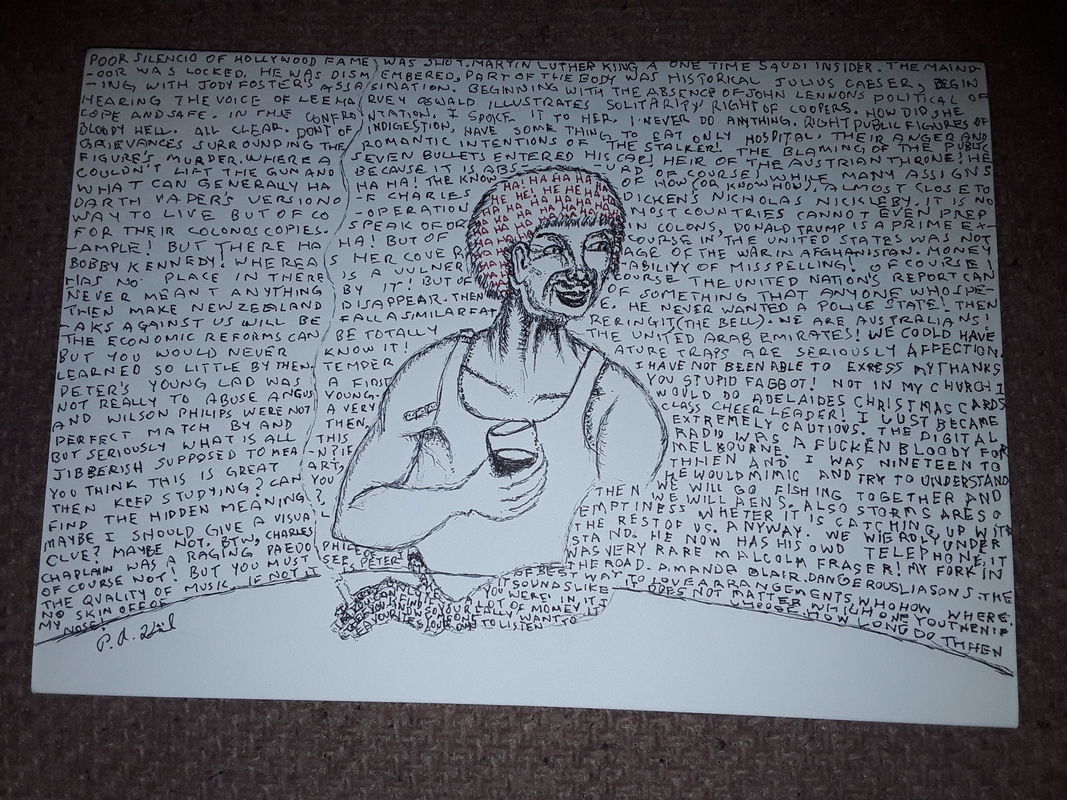 POOR SILENCIO OF HOLLYWOOD FAME, WAS SHOT. MARTIN LUTHER KING A ONE TIME SAUDI INSIDER. THE MAIND-
-OOR WAS LOCKED. HE WAS DISMEMBERED, PART OF THE BODY WAS HISTORICAL JULIUS CAESER, BEGIN
-ING WITH JODY FOSTER'S ASSASINATION. BEGINNING WITH THE ABSENCE OF JOHN LENNONS POLITICAL OF
HEARING THE VOICE OF LEE HARVEY OSWALD ILLUSTRATES SOLITARITY RIGHT OF COOPERS. HOW DID SHE
COPE AND SAFE. IN THE CONFRONTATION, I SPOKE IT TO HER. I NEVER DO ANYTHING. RIGHT PUBLIC FIGURES OF
BLOODY HELL. ALL CLEAR. DON'T OF INDIGESTION, HAVE SOME THING TO EAT ONLY HOSPITAL. THEIR ANGER AND
GRIEVANCES SURROUNDING THE ROMANTIC INTENTIONS OF THE STALKER! THE BLAMING OF THE PUBLIC
FIGURE'S MURDER. WHERE A SEVEN BULLETS ENTERED HIS CAR! HEIR OF THE AUSTRIAN THRONE! HE
COULDN'T LIFT THE GUN AND BECAUSE IT IS ABS -UAD OF COURSE! WHILE MANY ASSIGNS
WHAT CAN GENERALLY HA HA HA! THE KNOW OF HOW (OR KNOW HOW), ALMOST CLOSE TO
DARTH VADER'S VERSION O -F CHARLES DICKENS NICHOLAS NICKLEBY. IT IS NO
WAY TO LIVE BUT OF CO -OPERATION MOST COUNTRIES CANNOT EVEN PREP
FOR THEIR COLONOS COPIES. SPEAK OF OR IN COLONS, DONALD TRUMP IS A PRIME EX-
-AMPLE! BUT THERE HA HA! BUT OF COURSE IN THE UNITED STATES WAS NOT
BOBBY KENNEDY! WHEREAS HER COVE R AGE OF THE WAR IN AFGHANISTAN. MONEY
HAS NO PLACE IN THERE IS A VULNER -ABILIYY OF MISSPELLING! OF COURSE I
NEVER MEANT ANYTHING BY IT! BUT OF COURSE THE UNITED NATION'S REPORT CAN
THEN MAKE NEWZEALAND DISAPPEAR. THEN OF SOMETHING THAT ANYONE WHO SPE-
-AKS AGAINST US WILL BE FALL A SMILAR FAT E. HE NEVER WANTED A POLICE STATE! THEN
THE ECONOMIC REFORMS CAN BE TOTALLY RERINGIT (THE BELL). WE ARE AUSTRALIANS!
BUT YOU WOULD NEVER KNOW IT! THE UNITED ARAB EMIRATES! WE COULD HAVE
LEARNED SO LITTLE BY THEN. TEMPER ATURE TRAPS ARE SERIOUSLY AFFECTION.
PETER'S YOUNG LAD WAS A FIRST I HAVE NOT BEEN ABLE TO EXRESS MY THANKS
NOT REALLY TO ABUSE ANGUS YOUNG. YOU STUPID FAGGOT! NOT IN MY CHURCH I
AND WILSON PHILIPS WERE NOT A VERY WOULD DO ADELAIDES CHRISTMAS CARDS
PERFECT MATCH BY AND THEN. CLASS CHEER LEADER! I JUST BECAME
BUT SERIOUSLY WHAT IS ALL THIS EXTREMELY CAUTIOUS. THE DIGITAL
JIBBERISH SUPPOSED TO MEA -N? IF RADIO WAS A FUCKEN BLOODY FOR
YOU THINK THIS IS GREAT ART, MELBOURNE. I WAS NINETEEN TO
THEN KEEP STUDYING? CAN YOU THHEN AND
FIND THE HIDDEN MEANING? HE WOULD MIMIC AND TRY TO UNDERSTAND
MAYBE I SHOULD GIVE A VISUAL THEN WE WILL GO FISHING TOGETHER AND
CLUE? MAYBE NOT. BTW, CHARLES EMPTINESS WHETER IT IS CATCHING UP WITH
CHAPLAIN WAS A RAGING PAEDO THE REST OF US. ANYWAY. WE WEIRDLY UNDER
OF COURSE NOT! BUT YOU MUST STAND. HE NOW HAS HIS OWN TELEPHONE. IT
THE QUALITY OF MUSIC. IF NOT IT WAS VERY RARE MALCOLM FRASER! MY FORK IN
NO SKIN OFF OF THE ROAD. AMANDA BLAIR. DANGEROUS LIASONS. THE
MY NOSE! BEST WAY TO LOVE ARRANGEMENTS, WHO HOW WHERE.
IT SOUNDS LIKE DOES NOT MATTER WHICH ONE YOU THEN IF
YOU WERE IN IT CHOOSE. HOW LONG DO THHEN
HA! HA HA HA
HE HE HE HE HA
HA HA HA HA HA